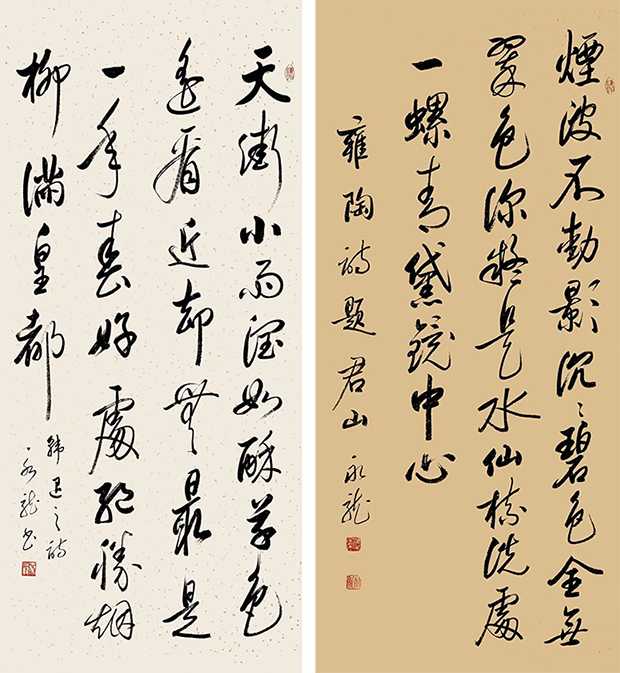 煙波不動影沉々碧色全無
翠色深疑是水仙梳洗處
一螺青黛鏡中心
雍陶詩題君山 永龍
天街小雨潤如酥草色
遙看近却無最是
一年春好處絕勝烟
柳滿皇都
韓退之詩
永龍書